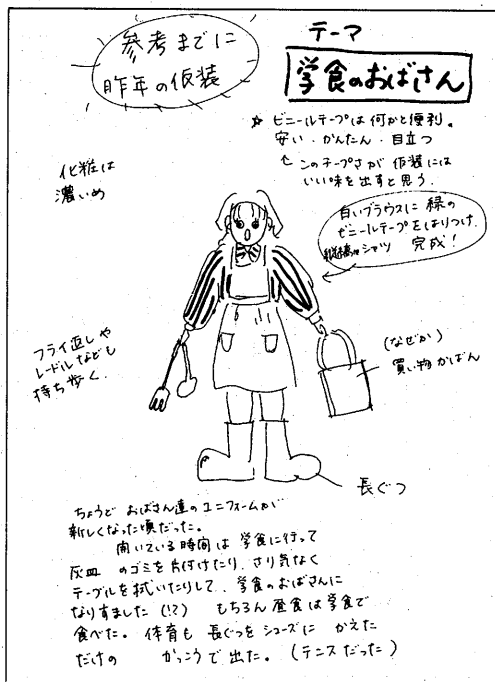 参考までに
昨年の仮装
テーマ
学食のおばさん
☆ ビニールテープは何かと便利。
安い・かんたん・目立つ
このチープさが 仮装には
いい味を出すと思う.
化粧は
濃いめ
白いブラウスに 緑の
ビニールテープをはりつけ.
シャツ 完成!
フライ返しや
レードルなども
持ち歩く.
(なぜか)
買い物かばん
長ぐつ
ちょうど おばさん達のユニフォームが
新しくなった頃だった。
開いている時間は 学食に行って
灰皿 のゴミを片付けたり、さり気なく
テーブルを拭いたりして、学食のおばさんに
なりすました (!?) もちろん昼食は学食で
食べた。 体育も 長ぐつをシューズに かえた
だけの かっこうで出た。 (テニスだった)